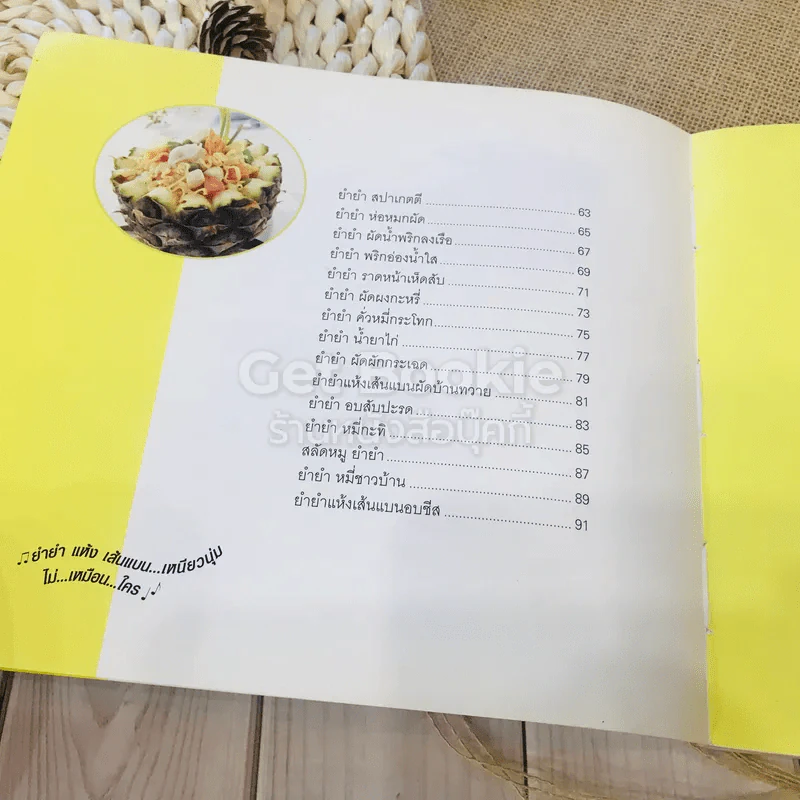 ยำยำ สปาเกตตี 63
ยำยำ ห่อหมกผัด 65
ยำยำ ผัดน้ำพริกลงเรือ 67
ยำยำ พริกอ่องน้ำใส 69
ยำยำ ราดหน้าเห็ดสับ 71
ยำยำ ผัดผงกะหรี่ 73
ยำยำ คั่วหมี่กระโทก 75
ยำยำ น้ำยาไก่ 77
ยำยำ ผัดผักกระเฉด 79
ยำยำแห้งเส้นแบนผัดบ้านทวาย 81
ยำยำ อบสับปะรด 83
ยำยำ หมี่กะทิ 85
สลัดหมู ยำยำ 87
ยำยำ หมี่ชาวบ้าน 89
ยำยำแห้งเส้นแบนอบชีส 91
♫ ยำยำ แห้ง เส้นแบน...เหนียวนุ่ม
ไม่...เหมือน...ใคร ♩♪
Get Bookie
ร้านหนังสือบุ๊คกี้